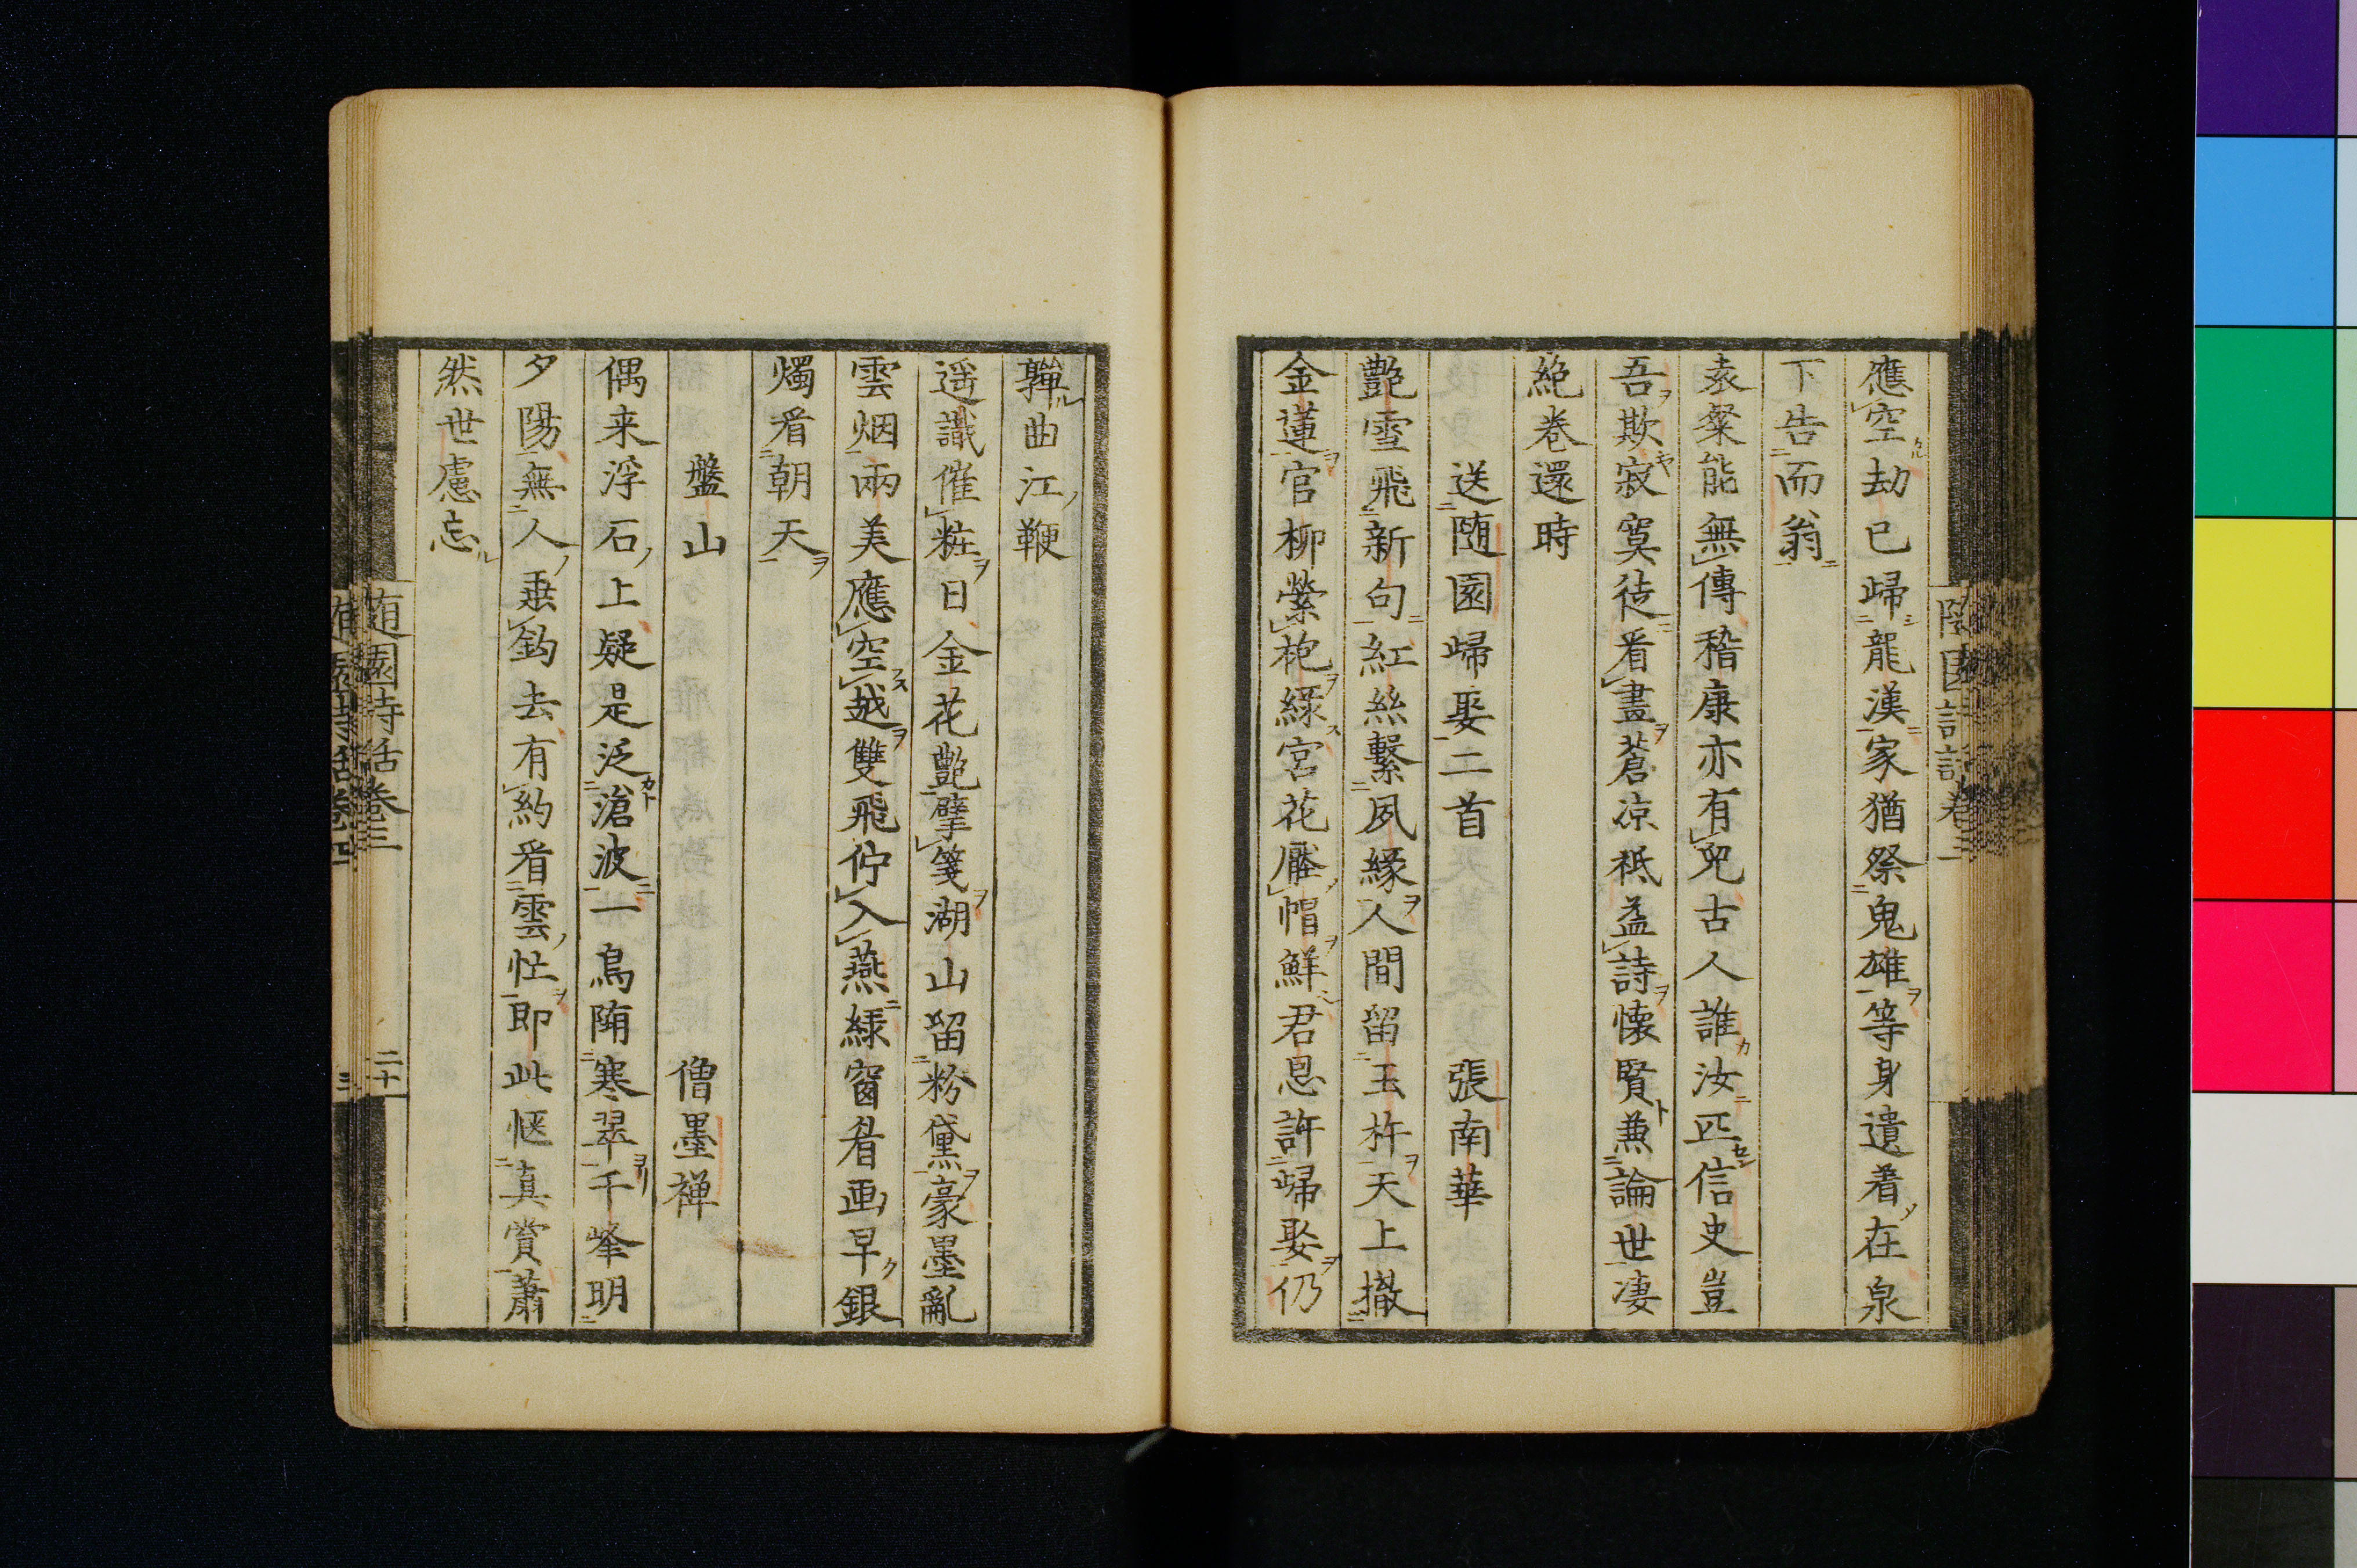 應空劫已歸龍漢家猶祭鬼雄等身遺着在泉
下告而翁
袁粲能無傳嵇康亦有兒古人誰汝匹信史豈
吾欺寂寞徒看畫蒼凉祗益詩懐賢兼論世凄
絶巻還時
送随園歸娶二首 張南華
艷雪飛新句紅絲繫夙縁人間留玉杵天上撤
金蓮官柳縈袍緑宮花壓帽鮮君恩許歸娶仍
嚲曲江鞭
遥識催粧日金花艷擘箋湖山留粉黛豪墨亂
雲烟兩美應空越雙飛佇入燕緑窗看画早銀
燭看朝天
盤山 僧墨禅
偶来浮石上疑是泛滄波一鳥隋寒翠千峰明
夕陽無人垂釣去有約看雲忙即此愜真賞蕭
然世慮忘
随園詩話巻三 二十一